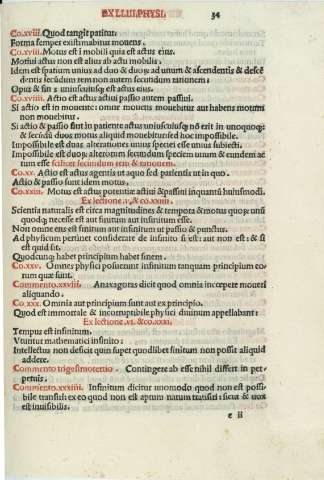 EX LI.III.PHYSI. 34
Co.xviii. Quod tangit patitur.
Forma semper existimabitur mouens.
Co.xviii. Motus est i mobili quia est actus eius.
Motiui actus non est alius ab actu mobilis.
Idem est spatium unius ad duo & duoꝝ ad unum & ascendentis & descé
dentis secūdum rem non autem secundum rationem:
Opus & fin s uniuscuiusꝗ est actus eius.
Co.xviiii. Actio est actus actusi passio autem passiui.
Si actio est in mouente: omne mouens mouebitur aut habens motum
non mouebitur.
Si actio & passio sunt in patiente actus uniuscuiusꝗ nō erit in unoquoꝗ:
& secūdū duos motus aliquid mouebitur sed hoc impossibile.
Impossibile est duas alterationes unius speciei esse unius subiecti.
Impossibile est duoꝝ alterorum secundum speciem unum & eundem ac
tum esse scilicet secundum rem & rationem.
Co.xx. Actio est actus agentis ut a quo sed patientis ut in quo.
Actio & passio sunt idem motus.
Co.xxiii. Motus est actus potentiæ actiui & passiui inquantū huiusmodi.
Ex lectione .v. & co.xxiiii.
Scientia naturalis est circa magnitudines & tempora & motus quoꝝ unū
quodꝗ necesse est aut finitum aut infinitum esse.
Non omne ens est finitum aut infinitum ut passio & punctus.
Ad physicum pertinet considerare de infinito si est: aut non est: & si
est quid sit.
Quodcunꝗ habet principium habet finem.
Co.xxv. Omnes physici posuerunt infinitum tanquam principium eo
rum quæ sunt.
Commento.xxviii. Anaxagoras dicit quod omnia incœpere moueri
aliquando.
Co.xxx. Omnia aut principium sunt aut ex principio.
Quod est immortale & incorruptibile physici diuinum appellabant:
Ex lectione .vi. & co.xxxi.
Tempus est infinitum.
Vtuntur mathematici infinito:
Intellectus non deficit quin super quodlibet finitum non possit aliquid
addere.
Commento trigesimotertio. Contingere ab esse nihil differt in per
petuis.
Commento.xxxiiii. Infinitum dicitur uno modo quod non est possi
bile transiri: ex eo quod non est aptum natum transiri: sicut uox
est inuisibilis.
e ii